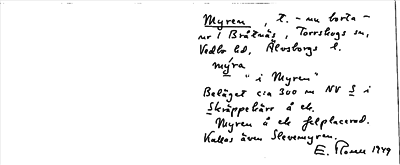 Myren, t. - nu borta -
nr 1 Bråtnäs, Torrskogs sn,
Vedbo hd, Älvsborgs l.
myra
"i Myren"
Beläget c:a 300 m NV S i
Skräppekärr å ek.
Myren å ek felplacerad.
Kallas även Slevemyren.
E. 1949